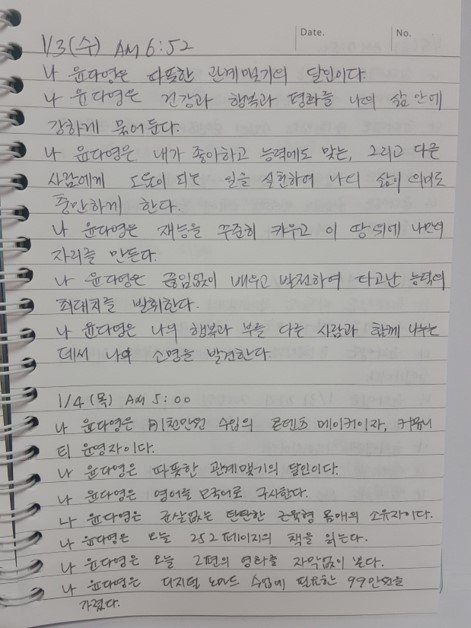 Date.
No.
1/3(수) AM 6:52
나 윤다영은 따뜻한 관계맺기의 달인이다.
나 윤다영은 건강과 행복과 평화를 나의 삶 안에
강하게 묶어둔다.
나 윤다영은 내가 좋아하고 능력에도 맞는, 그리고 다른
사람에게 도움이 되는 일을 실현하여 나의 삶이 의미로
충만하게 한다.
나 윤다영은 재능을 꾸준히 키우고 이 땅위에 나만의
자리를 만든다.
나 윤다영은 끊임없이 배우고 발전하여 타고난 능력의
최대치를 발휘한다.
나 윤다영은 나의 행복과 부를 다른 사람과 함께 나누는
데서 나의 소명을 발견한다.
1/4(목) AM 5:00
나 윤다영은 월천만원 수입의 콘텐츠 메이커이자, 커뮤니
티 운영자이다.
나 윤다영은 따뜻한 관계맺기의 달인이다.
나 윤다영은 영어를 모국어로 구사한다.
나 윤다영은 군살없는 탄탄한 근육형 몸매의 소유자이다.
나 윤다영은 오늘 252페이지의 책을 읽는다.
나 윤다영은 오늘 2편의 영화를 자막없이 본다.
나 윤다영은 디지털 노마드 수업에 필요한 99만원을
가졌다.